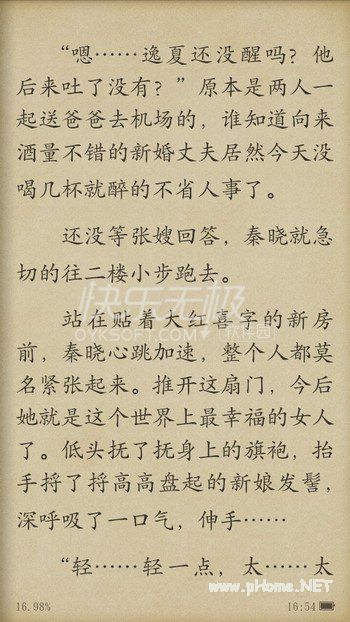 “嗯……逸夏还没醒吗？他
后来吐了没有？”原本是两人一
起送爸爸去机场的，谁知道向来
酒量不错的新婚丈夫居然今天没
喝几杯就醉的不省人事了。
还没等张嫂回答，秦晓就急
切的往二楼小步跑去。
快乐无极
OYKSOFT.COM 软件园
站在贴着大红喜字的新房
前，秦晓心跳加速，整个人都莫
名紧张起来。推开这扇门，今后
她就是这个世界上最幸福的女人
了。低头抚了抚身上的旗袍，抬
手捋了捋高高盘起的新娘发髻，
深呼吸了一口气，伸手……
“轻……轻一点，太……太
www.pHome.NET
16.98% 16:54